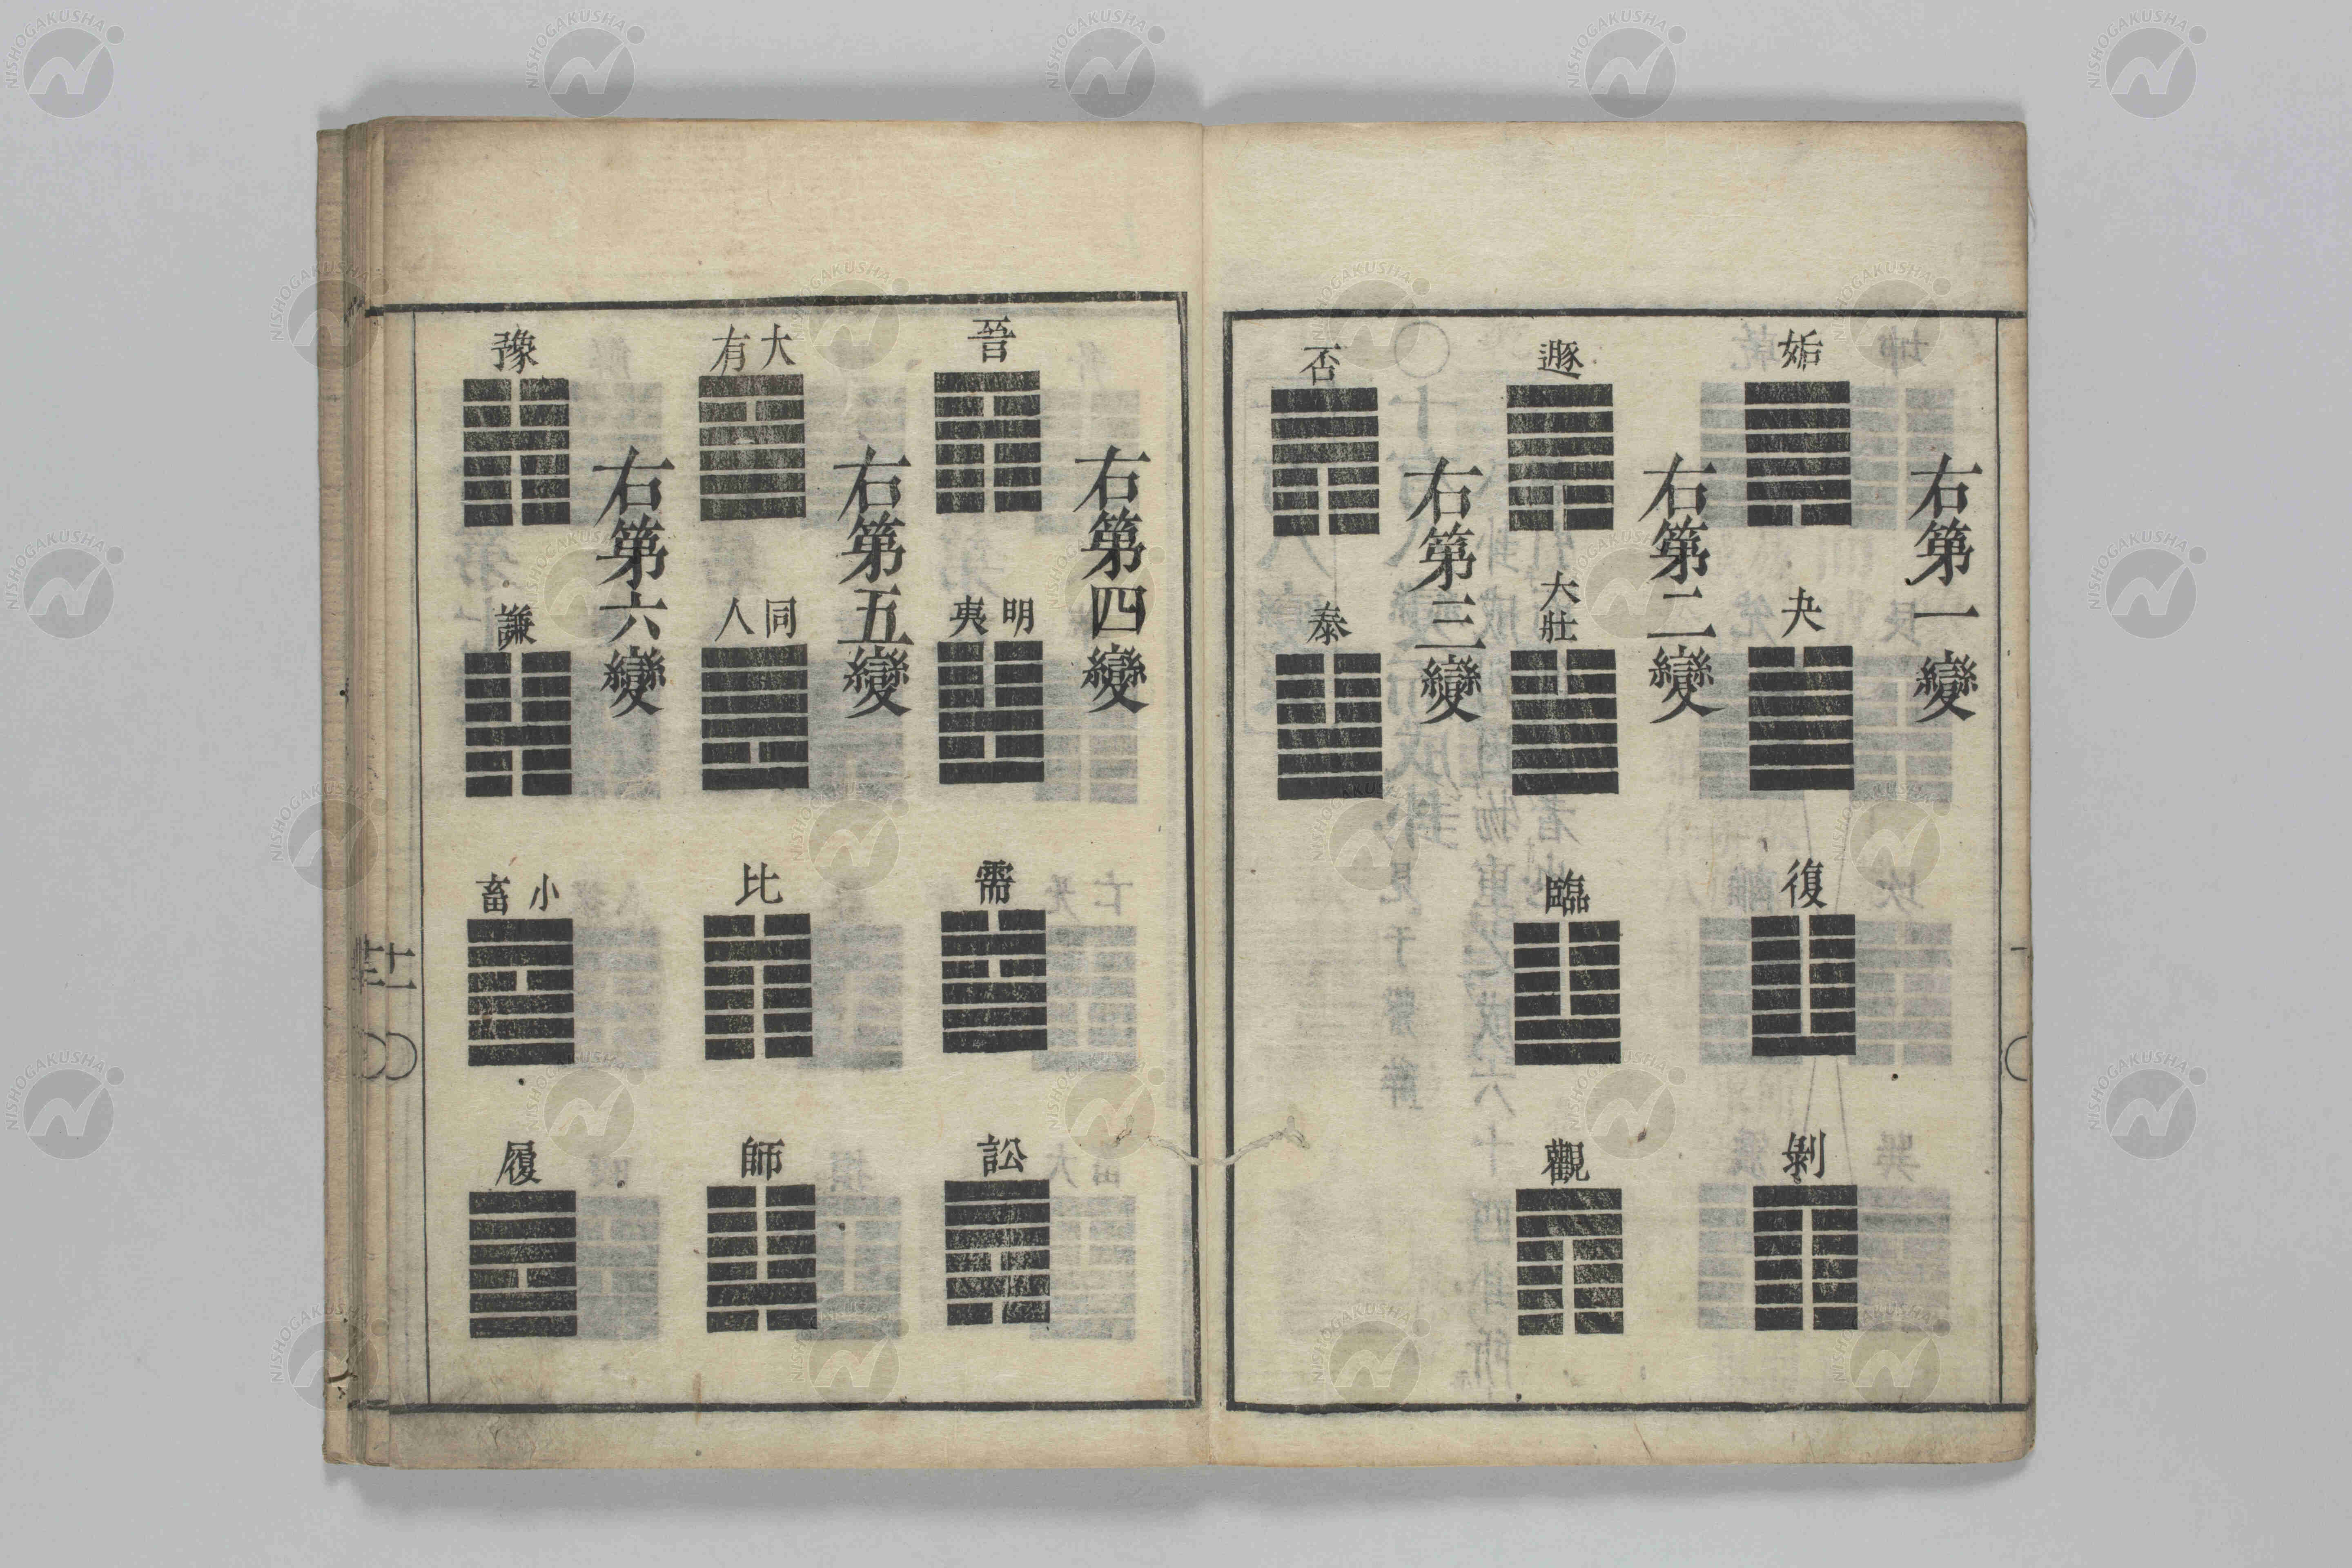 右第一變
姤
夬
復
剝
右第二變
遯
大壯
臨
觀
右第三變
否
泰
右第四變
晉
明夷
需
訟
右第五變
大有
同人
比
師
右第六變
豫
謙
小畜
履
十一
NISHOGAKUSHA